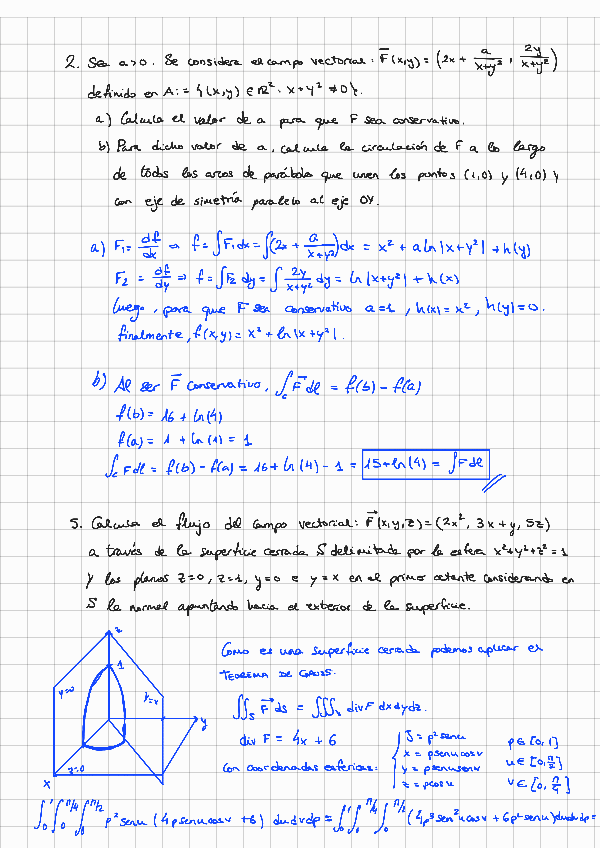 2. Sea a>0. Se considera el campo vectorial: F⃗(x,y) = (2x + a/(x+y²), 2y/(x+y²))
definido en A:= {(x,y) ∈ ℝ² : x+y² ≠ 0}.
a) Calcula el valor de a para que F sea conservativo.
b) Para dicho valor de a, calcula la circulación de F a lo largo
de todos los arcos de parábola que unen los puntos (1,0) y (4,0) y
con eje de simetría paralelo al eje OY.
a) F₁ = df/dx ⇒ f = ∫F₁dx = ∫(2x + a/(x+y²))dx = x² + a ln|x+y²| + h(y)
F₂ = df/dy ⇒ f = ∫F₂ dy = ∫ 2y/(x+y²) dy = ln|x+y²| + h(x)
Luego, para que F sea conservativo a=1, h(x) = x², h(y) = 0.
finalmente, f(x,y) = x² + ln|x+y²|.
b) Al ser F⃗ conservativo, ∫c F⃗dl = f(b) - f(a)
f(b) = 16 + ln(4)
f(a) = 1 + ln(1) = 1
∫c Fdl = f(b) - f(a) = 16 + ln(4) - 1 = 15 + ln(4) = ∫Fdl
5. Calcula el flujo del campo vectorial: F⃗(x,y,z) = (2x², 3x+y, 5z)
a través de la superficie cerrada S delimitada por la esfera x²+y²+z² = 1
y los planos z=0, z=1, y=0 e y=x en el primer octante considerando en
S la normal apuntando hacia el exterior de la superficie.
z
1
y=0
y=x
y
z=0
x
Como es una superficie cerrada podemos aplicar el
TEOREMA DE GAUSS.
∬s F⃗ds = ∭s divF dxdydz.
div F = 4x + 6
Con coordenadas esféricas:
J = ρ² senu
x = ρ senu cosv
y = ρ senu senv
z = ρ cosu
ρ ∈ [0,1]
u ∈ [0, π/2]
v ∈ [0, π/4]
∫₀¹ ∫₀^π/4 ∫₀^π/2 ρ² senu (4ρ senu cosv + 6) du dv dρ = ∫₀¹ ∫₀^π/4 ∫₀^π/2 (4ρ³ sen²u cosv + 6ρ² senu) du dv dρ =